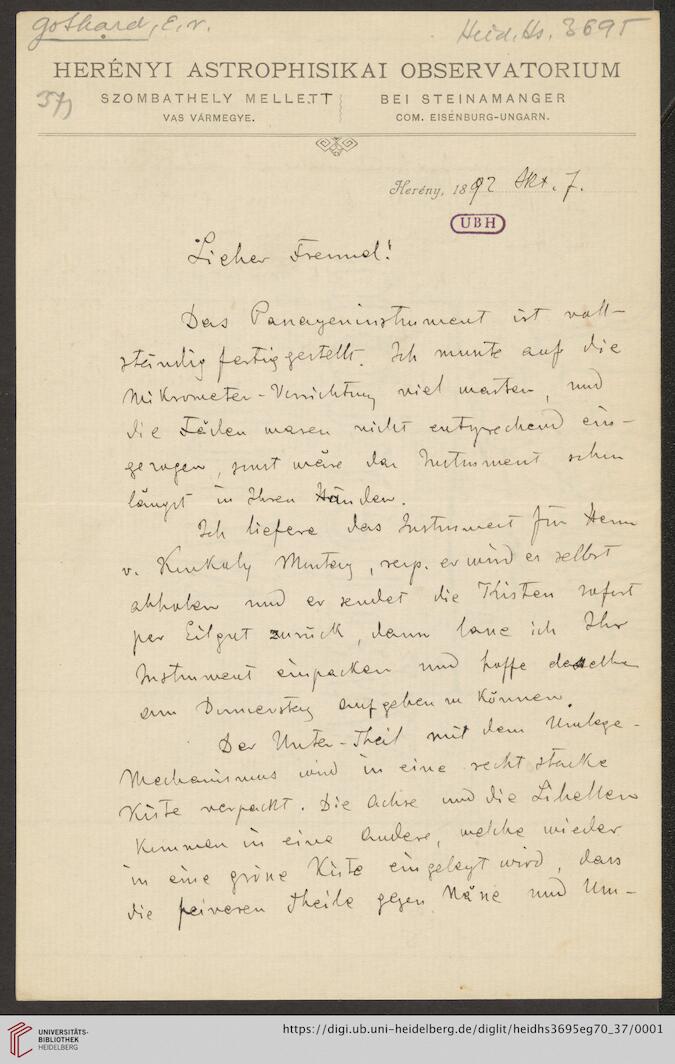 Gothard, E. v.
Heid. Hs. 3695
37)
HERÉNYI ASTROPHISIKAI OBSERVATORIUM
SZOMBATHELY MELLETT
VAS VÁRMEGYE.
BEI STEINAMANGER
COM. EISENBURG-UNGARN.
Herény, 1892 Okt. 7.
UBH
Lieber Freund!
Das Passageninstrument ist voll-
ständig fertiggestellt. Ich musste auf die
Mikrometer-Vorrichtung viel warten, und
die Fäden waren nicht entsprechend ein-
gezogen, sonst wäre das Instrument schon
längst in Ihren Händen.
Ich liefere das Instrument für Herrn
v. Konkoly Montag, resp. er wird es selbst
abholen und er sendet die Kisten sofort
per Eilgut zurück, dann lasse ich Ihr
Instrument einpacken und hoffe dasselbe
am Donnerstag aufgeben zu können.
Der Unter-Theil mit dem Umlege-
Mechanismus wird in eine recht starke
Kiste verpackt. Die Achse und die Libellen
kommen in eine andere, welche wieder
in eine grösse Kiste eingelegt wird, dass
die feineren Theile gegen Nässe und Um-
UNIVERSITÄTS-
BIBLIOTHEK
HEIDELBERG
https://digi.ub.uni-heidelberg.de/diglit/heidhs3695eg70_37/0001